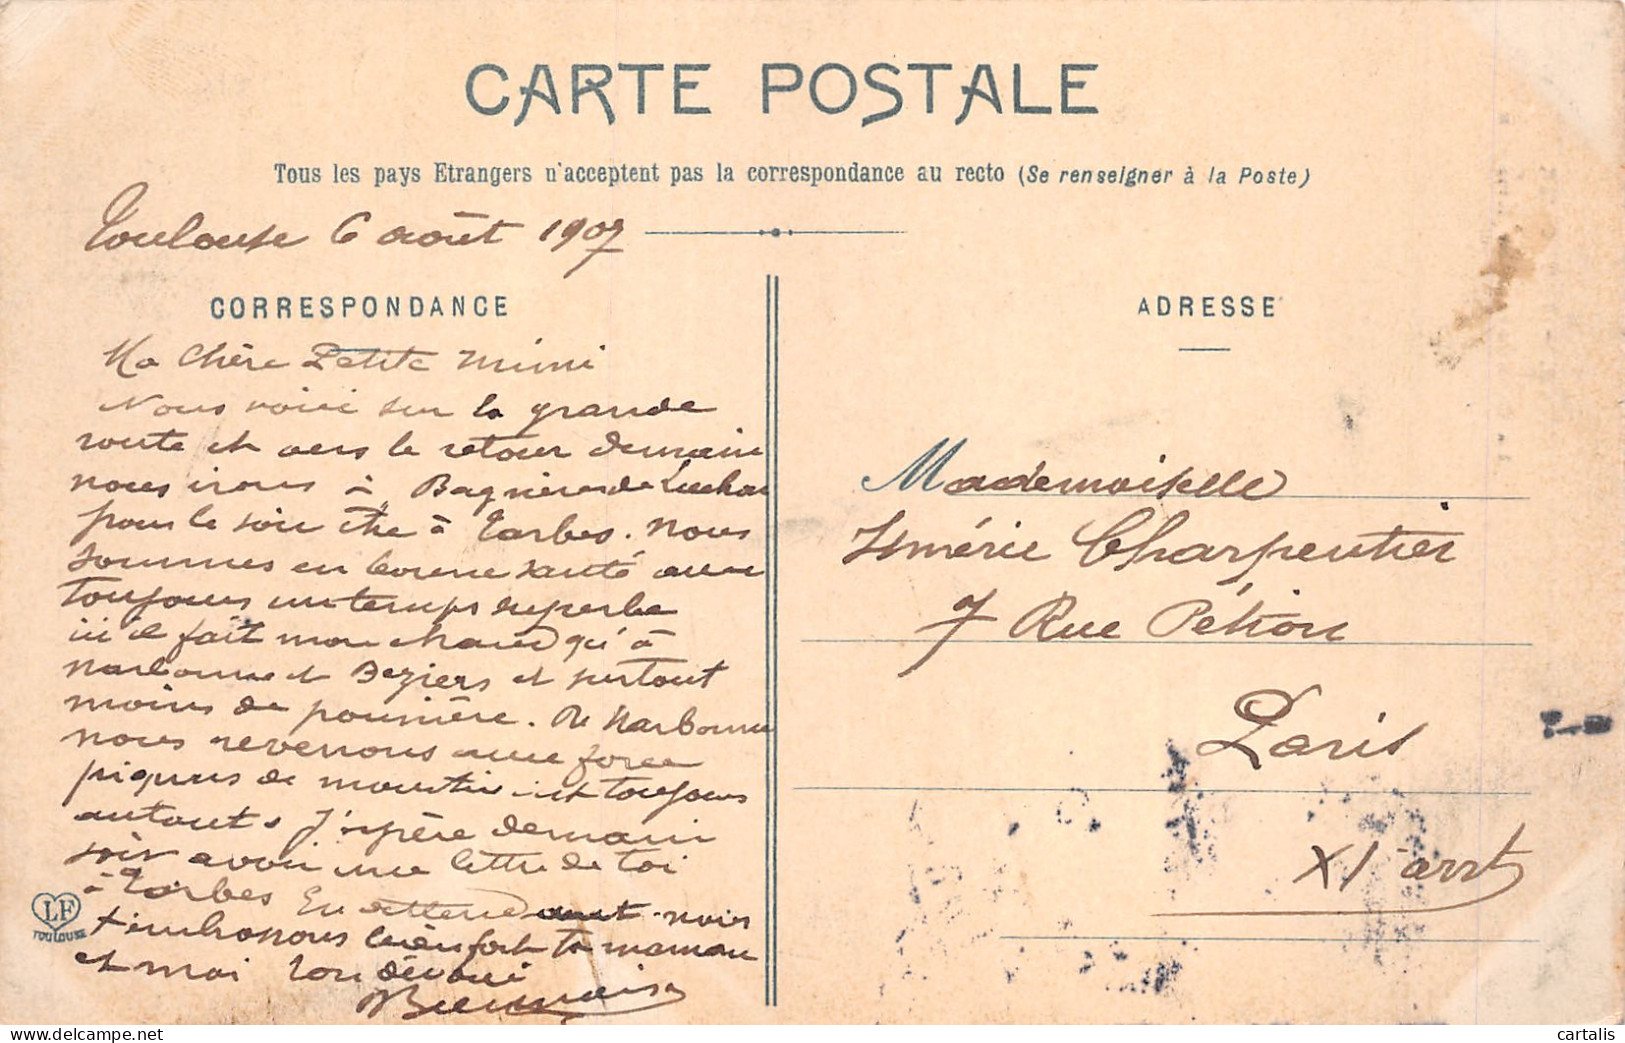 CARTE POSTALE
Tous les pays Etrangers n'acceptent pas la correspondance au recto (Se renseigner à la Poste)
Toulouse 6 août 1907
CORRESPONDANCE
Ma Chère Petite Mimi
Nous voici sur la grande
route et vers le retour demain
nous irons à Bagnères de Luchon
pour le soir être à Tarbes. Nous
sommes en bonne santé avec
toujours un temps superbe
ici il fait moins chaud qu'à
Narbonne et Beziers et surtout
moins de poussière. De Narbonne
nous revenons avec force
piqures de moustics et toujours
autant. J'espère demain
soir avoir une lettre de toi
à Tarbes En attendant nous
t'embrassons bien fort ta maman
et moi Ton dévoué
ADRESSE
Mademoiselle
Ismérie Charpentier
7 Rue Pétion
Paris
XI arrt
LF
TOULOUSE
cartalis
delcampe.net